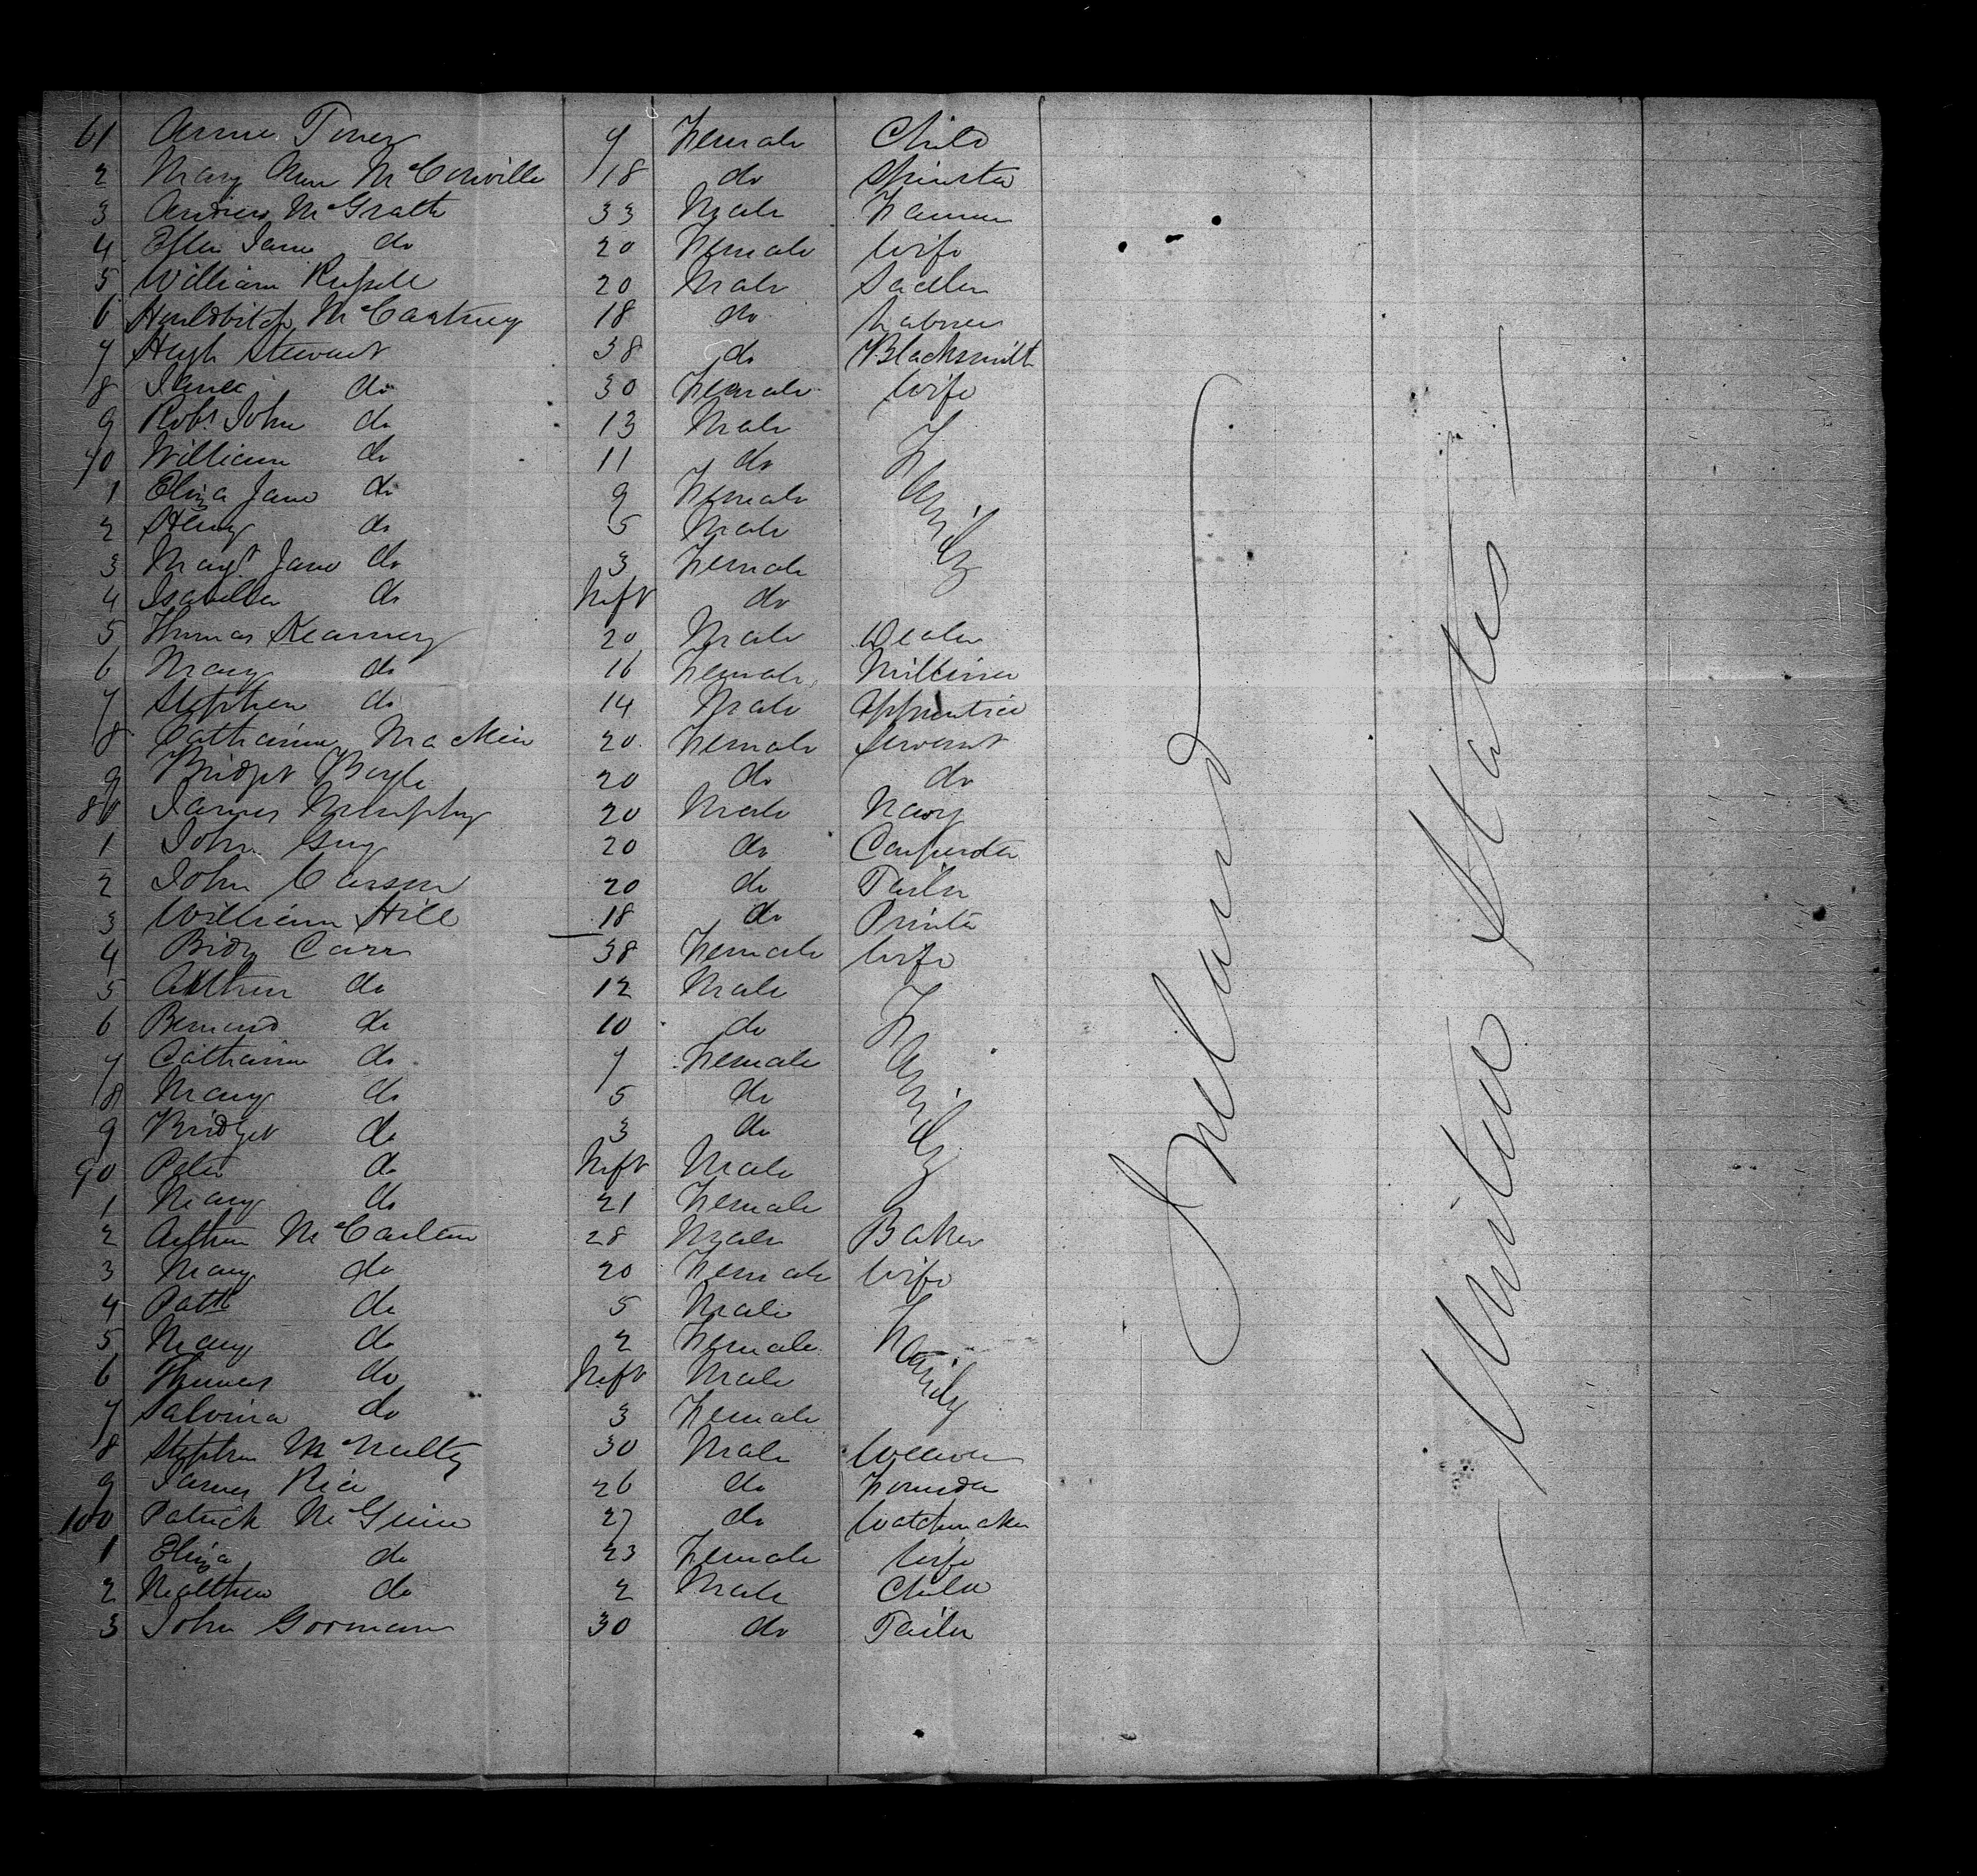 61 Annie Toner 7 Female Child
2 Mary Ann McConville 18 do Spinster
3 Andrew McGrath 33 Male Farmer
4 Ellen Jane do 20 Female Wife
5 William Russell 20 Male Sadler
6 McCartney 18 do Laborer
7 Hugh Stewart 38 do Blacksmith
8 do 30 Female Wife
9 Robt John do 13 Male
70 William do 11 do
1 Eliza Jane do 9 Female
2 Henry do 5 Male
3 Margt Jane do 3 Female
4 Isabella do Inft do
Family
5 Thomas Kearney 20 Male Dealer
6 Mary do 16 Female Milliner
7 Stephen do 14 Male Apprentice
8 Catharine Mackin 20 Female Servant
9 Bridget Boyle 20 do do
80 James Murphy 20 Male Navy
1 John Guy 20 do Carpenter
2 John Carson 20 do Tailor
3 William Hill 18 do Printer
4 Bidy Carr 38 Female Wife
5 Arthur do 12 Male
6 Bernard do 10 do
7 Catharine do 7 Female
8 Mary do 5 do
9 Bridget do 3 do
90 Peter do Inft Male
1 Mary do 21 Female
Family
2 Arthur McCarlen 28 Male Baker
3 Mary do 20 Female Wife
4 Patk do 5 Male
5 Mary do 2 Female
6 Thomas do Inft Male
7 Salvina do 3 Female
Family
8 Stephen McNulty 30 Male Weaver
9 James Rice 26 do Founder
100 Patrick McGuire 27 do Watchmaker
1 Eliza do 23 Female Wife
2 Matthew do 2 Male Child
3 John Gorman 30 do Tailor
Ireland
United States